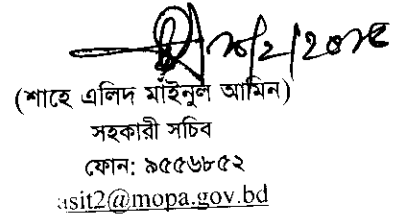 (শাহে এলিদ মাইনুল আমিন)
সহকারী সচিব
ফোন: ৯৫৫৬৮৫২
asit2@mopa.gov.bd